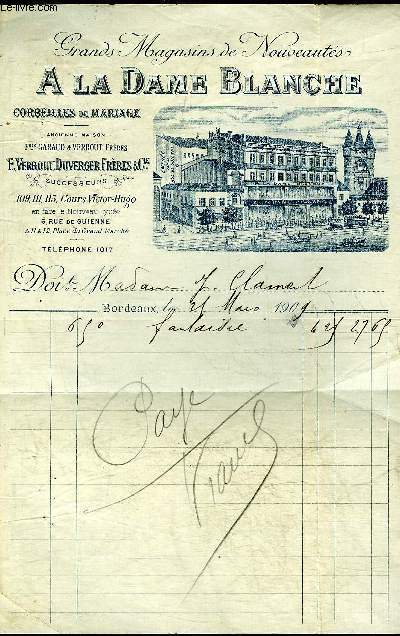 Le-livre.com
Grands Magasins de Nouveautés
A LA DAME BLANCHE
CORBEILLES DE MARIAGE
ANCIENNE MAISON
GARAUD & VERROUT FRÈRES
F. VERROUT, DUVERGER FRÈRES & Cie
SUCCESSEURS
109, 111, 113, Cours Victor-Hugo
en face le Nouveau Lycée
5, RUE DE GUIENNE
& 11 & 12, Place du Grand Marché
TÉLÉPHONE 1017
Doit Madame J. Clament
Bordeaux, le 25 Mars 1909
650 fantaisie 425 2765
Payé